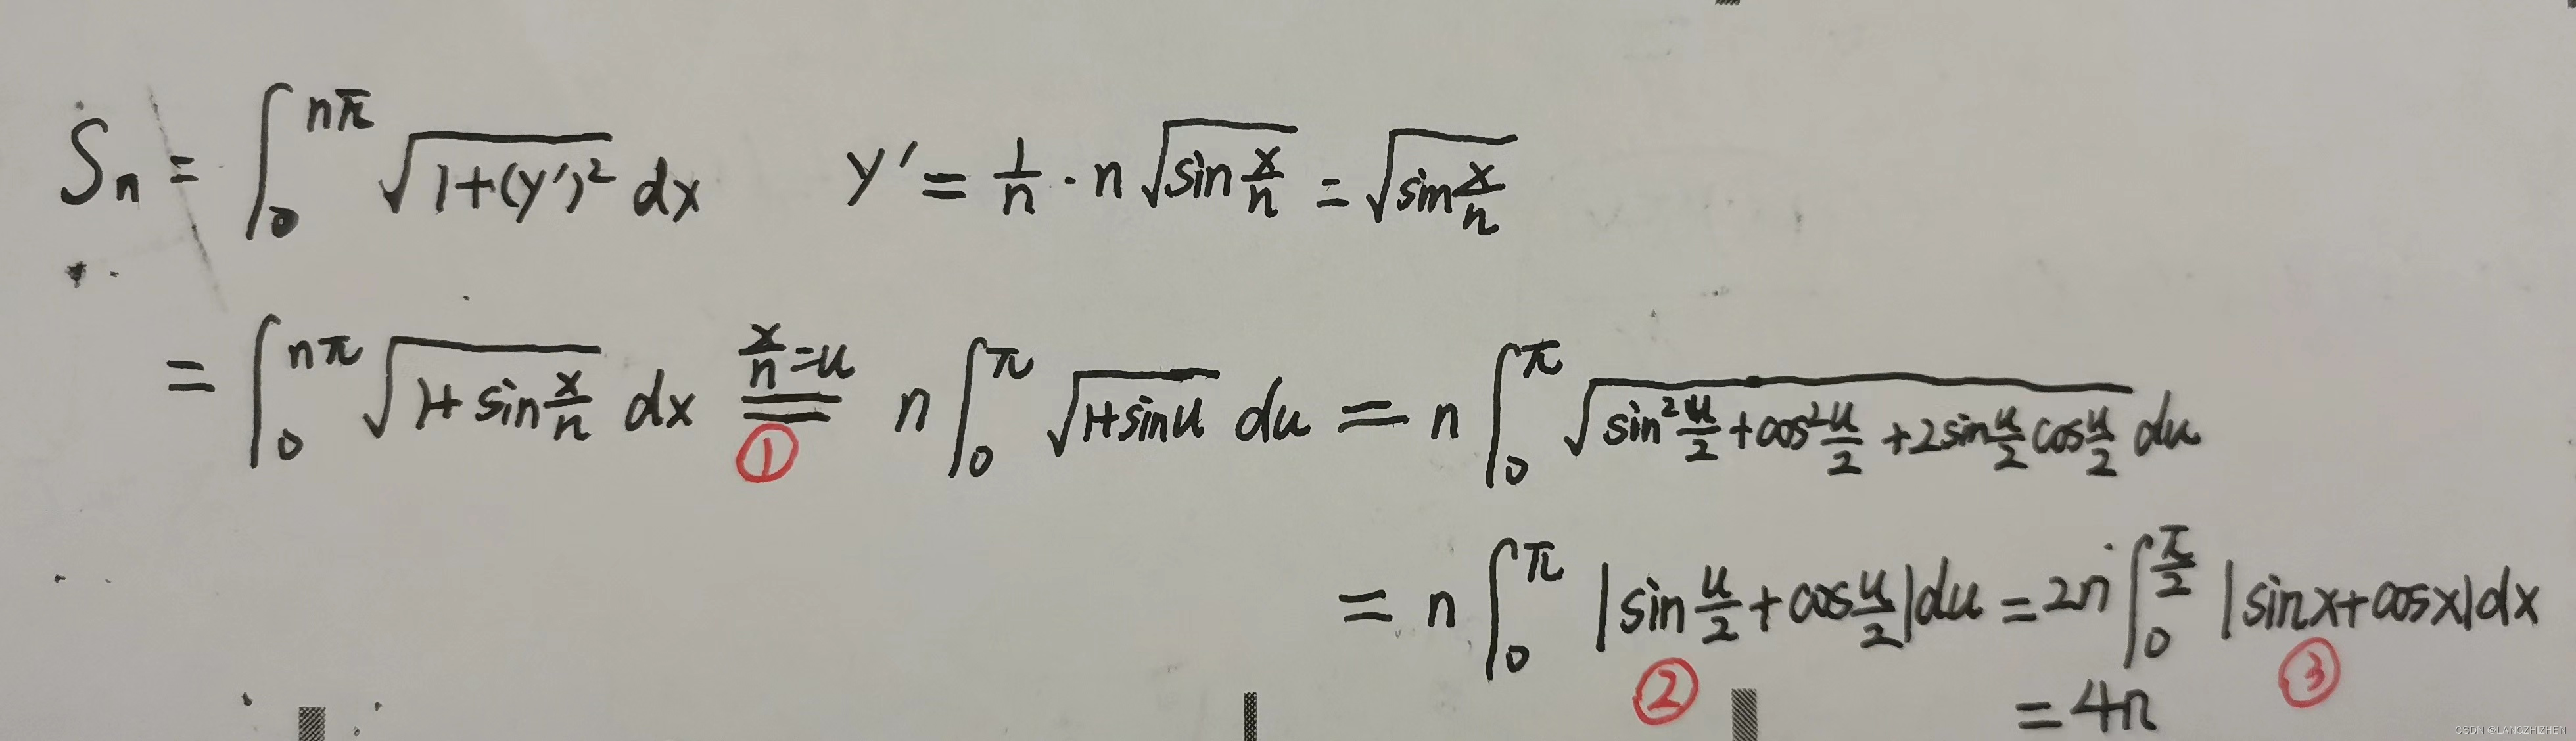 Sn = ∫₀^{nπ} √(1+(y')²) dx  y' = 1/n · n √(sin x/n) = √(sin x/n)
= ∫₀^{nπ} √(1+sin x/n) dx =(x/n=u) ① n ∫₀^π √(1+sinu) du = n ∫₀^π √(sin² u/2 + cos² u/2 + 2sin u/2 cos u/2) du
= n ∫₀^π |sin u/2 + cos u/2| du = 2n ∫₀^{π/2} |sinx+cosx| dx
② ③
= 4n
CSDN @LANGZHIZHEN